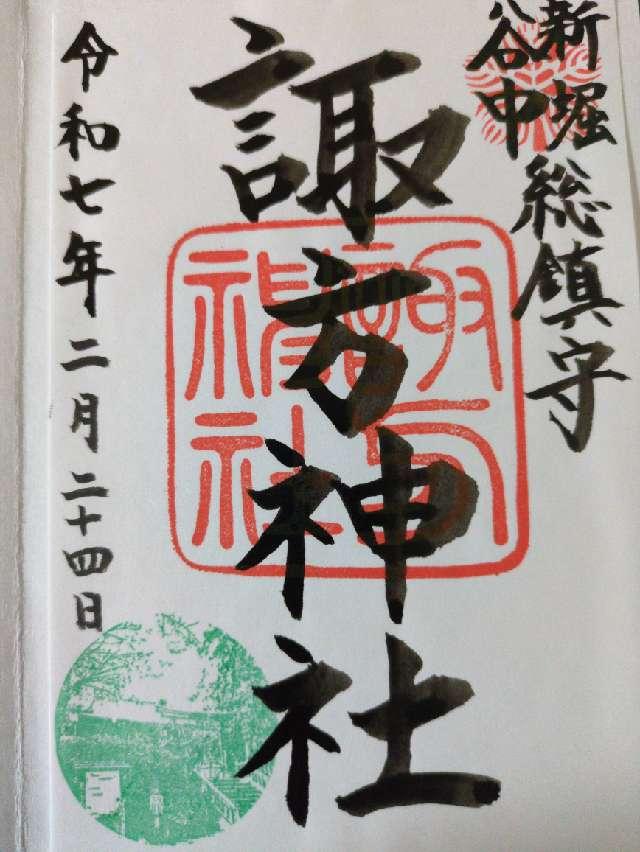 新堀
谷中
総鎮守
諏方神社
令和七年二月二十四日
諏方神社